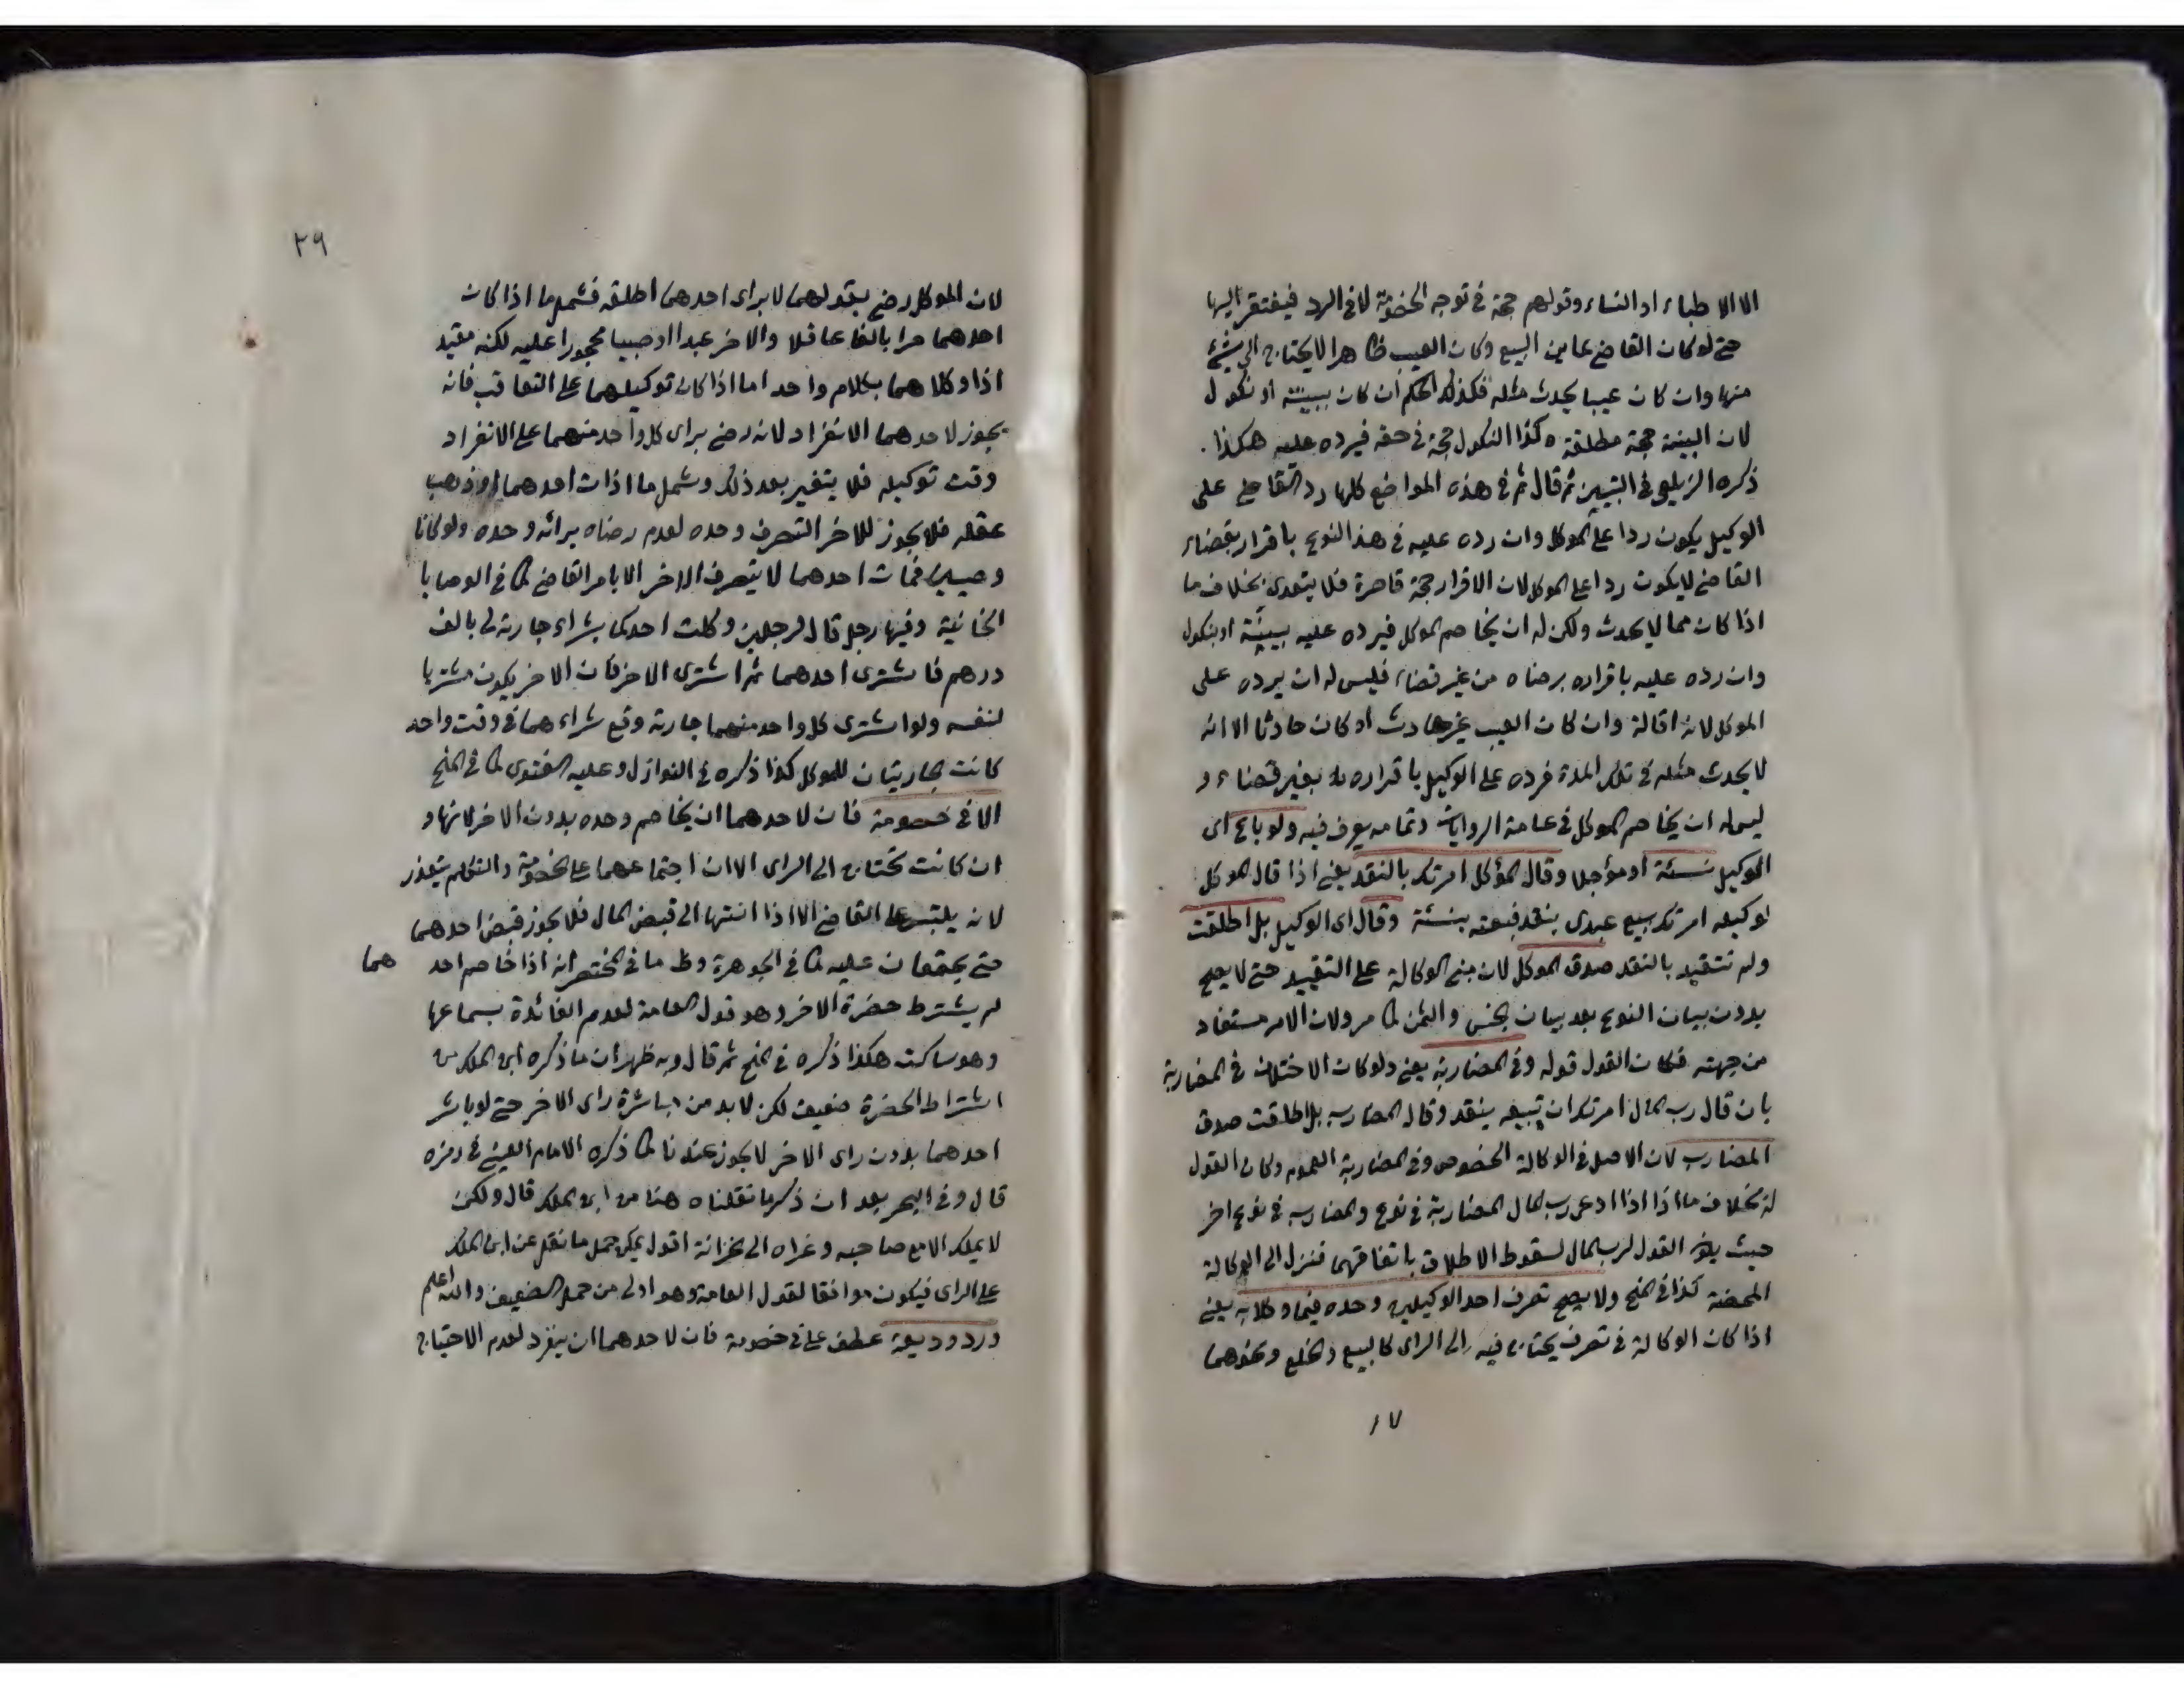 الا الاطباء او النساء وقولهم حجة في توجه الخصومة لا في الرد فيفتقر اليها
حتى لو كان القاضي عاين البيع وكان العيب ظاهرا لا يحتاج الى شيء
منها وان كان عيبا يحدث مثله فكذلك الحكم ان كان ببينة او نكول
لان البينة حجة مطلقة وكذا النكول حجة في حقه فيرده عليه هكذا.
ذكره الزيلعي في التبيين ثم قال ثم في هذه المواضع كلها رد القاضي على
الوكيل يكون ردا على الموكل وان رده عليه في هذا النوع باقرار بقضاء
القاضي لا يكون ردا على الموكل لان الاقرار حجة قاصرة فلا يتعدى بخلاف ما
اذا كان مما لا يحدث ولكن له ان يخاصم الموكل فيرده عليه ببينة او بنكول
وان رده عليه باقراره برضاه من غير قضاء فليس له ان يرده على
الموكل لانه اقالة وان كان العيب غير حادث او كان حادثا الا انه
لا يحدث مثله في تلك المدة فرده على الوكيل باقراره بغير قضاء و
ليس له ان يخاصم الموكل في عامة الروايات وتمامه يعرف فيه ولو باع اى
الوكيل نسئة او مؤجلا وقال الموكل امرتك بالنقد يعني اذا قال الموكل
لوكيله امرتك ببيع عبدى بنقد فبعته بنسئة وقال اى الوكيل بل اطلقت
ولم تتقيد بالنقد صدق الموكل لان مبنى الوكالة على التقييد حتى لا يصح
بدون بيان النوع بعد بيان الجنس والثمن كما مر ولان الامر مستفاد
من جهته فكان القول قوله وفي المضاربة يعني ولو كان الاختلاف في المضاربة
بان قال رب المال امرتك ان تبيعه بنقد وقال المضارب بل اطلقت صدق
المضارب لان الاصل في الوكالة الخصوص وفي المضاربة العموم وكان القول
له بخلاف ما اذا اذا ادعى رب المال المضاربة في نوع والمضارب في نوع اخر
حيث يكون القول لرب المال لسقوط الاطلاق باتفاقهما فنزل الى الوكالة
المحضة كذا في المنح ولا يصح تصرف احد الوكيلين وحده فيما وكلا به يعني
اذا كان الوكالة في تصرف يحتاج فيه الى الراى كالبيع والخلع ونحوهما
١٧
٣٩
لان الموكل رضي بقولهما لا براى احدهما اطلقه فشمل ما اذا كان
احدهما حرا بالغا عاقلا والاخر عبدا او صبيا محجورا عليه لكنه مقيد
اذا وكلاهما بكلام واحد اما اذا كان توكيلهما على التعاقب فانه
يجوز لاحدهما الانفراد لانه رضي براى كل واحد منهما على الانفراد
وقت توكيله فلا يتغير بعد ذلك وشمل ما اذا مات احدهما او ذهب
عقله فلا يجوز للاخر التصرف وحده لعدم رضاه برائه وحده ولو كانا
وصيين فمات احدهما لا يتصرف الاخر الا بامر القاضي كما في الوصايا
الخانية وفيها رجل قال لرجلين وكلت احدكما بشراء جارية لي بالف
درهم فاشترى احدهما ثم اشترى الاخر فان الاخر يكون مشتريا
لنفسه ولو اشترى كل واحد منهما جارية وقع شراءهما في وقت واحد
كانت الجاريتان للموكل كذا ذكره في النوازل وعليه الفتوى كما في المنح
الا في خصومة فان لاحدهما ان يخاصم وحده بدون الاخر لانها و
ان كانت تحتاج الى الراى الا ان اجتماعهما على الخصومة والتكلم يتعذر
لانه يلتبس على القاضي الا اذا انتها الى قبض المال فلا يجوز قبض احدهما
حتى يجتمعان عليه كما في الجوهرة وظ ما في المختصر انه اذا خاصم احد هما
لم يشترط حضرة الاخر وهو قول العامة لعدم الفائدة بسماعها
وهو ساكت هكذا ذكره في المنح ثم قال وبه ظهر ان ما ذكره ابن الملك من
اشتراط الحضرة ضعيف لكن لا بد من مباشرة راى الاخر حتى لو باشر
احدهما بدون راى الاخر لا يجوز عندنا كما ذكره الامام العيني في رمزه
قال وفي البحر بعد ان ذكر ما نقلناه هنا من ابن الملك قال ولكن
لا يملك الا مع صاحبه وعزاه الى الخزانة اقول يمكن حمل ما نقل عن ابن الملك
على الراى فيكون موافقا لقول العامة وهو اولى من حمله الضعيف والله اعلم
ورد وديعة عطف على في خصومة فان لاحدهما ان ينفرد لعدم الاحتياج